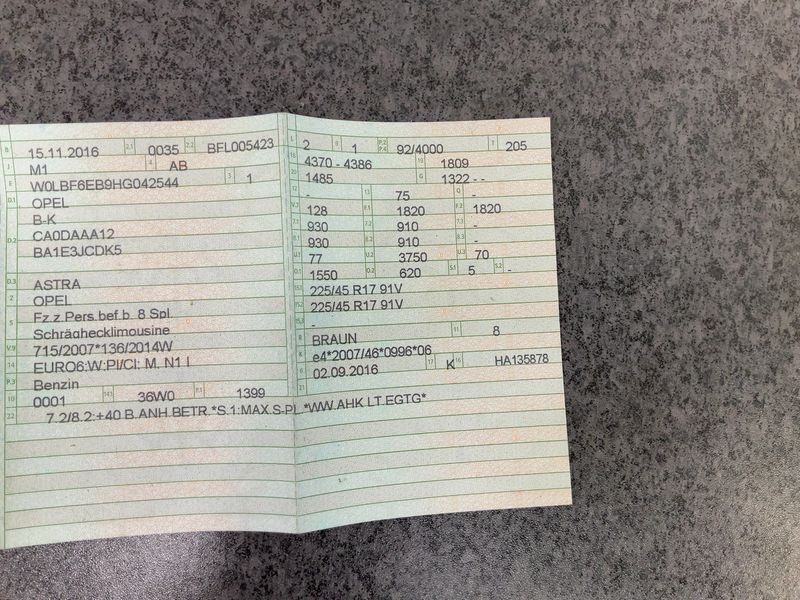 B 15.11.2016 2.1 0035 2.2 BFL005423
J M1 4 AB
E W0LBF6EB9HG042544 3 1
D.1 OPEL
B-K
D.2 CA0DAAA12
BA1E3JCDK5
D.3 ASTRA
2 OPEL
5 Fz.z.Pers.bef.b. 8 Spl.
Schräghecklimousine
V.9 715/2007*136/2014W
14 EURO6;W;PI/CI; M, N1 I
P.3 Benzin
10 0001 14.1 36W0 P.1 1399
22 7.2/8.2:+40 B.ANH.BETR.*S.1:MAX.S-PL.*WW.AHK LT.EGTG*
L 2 9 1 P.2 P.4 92/4000 T 205
18 4370 - 4386 19 1809
20 1485 G 1322 - -
12 - 13 75 Q -
V.7 128 F.1 1820 F.2 1820
7.1 930 7.2 910 7.3 -
8.1 930 8.2 910 8.3 -
U.1 77 U.2 3750 U.3 70
O.1 1550 O.2 620 S.1 5 S.2 -
15.1 225/45 R17 91V
15.2 225/45 R17 91V
15.3 -
R BRAUN 11 8
K e4*2007/46*0996*06
6 02.09.2016 17 K 16 HA135878
21